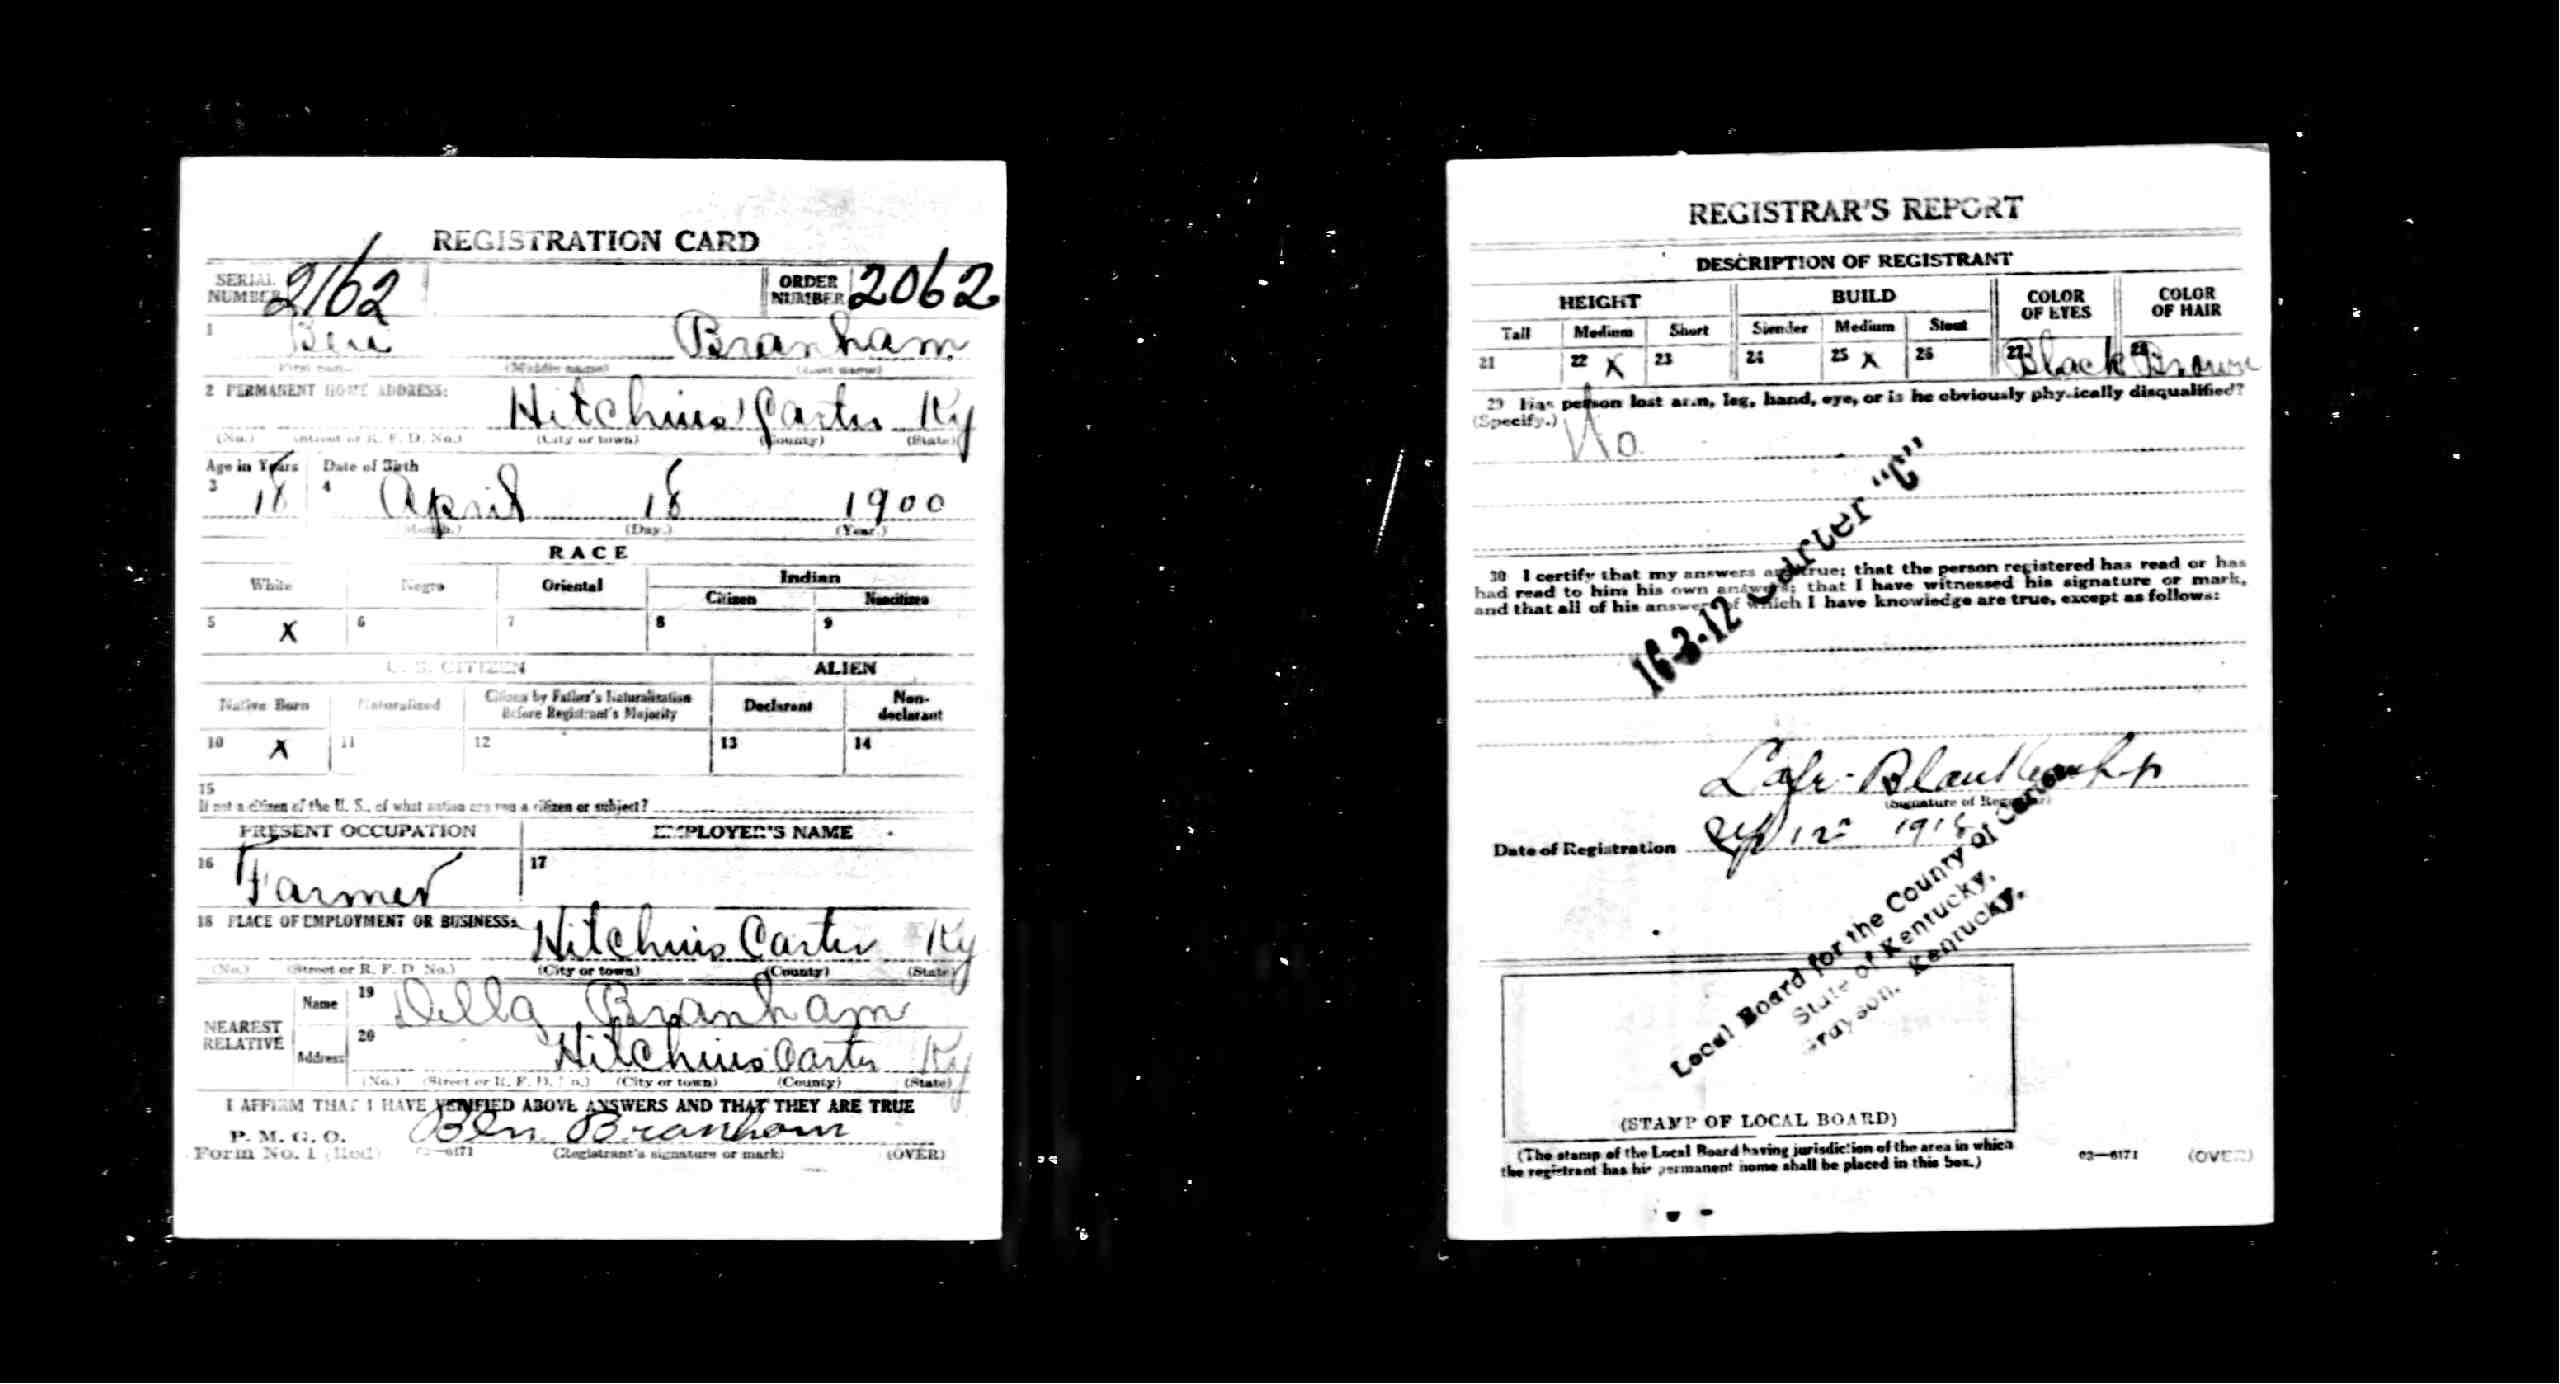 REGISTRATION CARD
SERIAL NUMBER 2162 ORDER NUMBER 2062
1 Ben Branham
(First name) (Middle name) (Last name)
2 PERMANENT HOME ADDRESS:
Hitchins Carter Ky
(No.) (Street or R. F. D. No.) (City or town) (County) (State)
Age in Years Date of Birth
3 18 4 April 18 1900
(Month.) (Day.) (Year.)
RACE
White Negro Oriental Indian
Citizen Noncitizen
5 X 6 7 8 9
U. S. CITIZEN ALIEN
Native Born Naturalized Citizen by Father's Naturalization Before Registrant's Majority Declarant Non-declarant
10 X 11 12 13 14
15
If not a citizen of the U. S., of what nation are you a citizen or subject?
PRESENT OCCUPATION EMPLOYER'S NAME
16 Farmer 17
18 PLACE OF EMPLOYMENT OR BUSINESS:
Hitchins Carter Ky
(No.) (Street or R. F. D. No.) (City or town) (County) (State)
NEAREST RELATIVE
Name 19 Della Branham
Address 20 Hitchins Carter Ky
(No.) (Street or R. F. D. No.) (City or town) (County) (State)
I AFFIRM THAT I HAVE VERIFIED ABOVE ANSWERS AND THAT THEY ARE TRUE
P. M. G. O.
Form No. 1 (Red) 03—6171 Ben Branham
(Registrant's signature or mark) (OVER)
REGISTRAR'S REPORT
DESCRIPTION OF REGISTRANT
HEIGHT BUILD COLOR OF EYES COLOR OF HAIR
Tall Medium Short Slender Medium Stout
21 22 X 23 24 25 X 26 27 Black 28 Brown
29 Has person lost arm, leg, hand, eye, or is he obviously physically disqualified?
(Specify.) No
30 I certify that my answers are true; that the person registered has read or has
had read to him his own answers; that I have witnessed his signature or mark,
and that all of his answers of which I have knowledge are true, except as follows:
16-3-12 Carter "C"
(Signature of Registrar)
Date of Registration Sep 12 1918
Local Board for the County of Carter
State of Kentucky,
Grayson, Kentucky.
(STAMP OF LOCAL BOARD)
(The stamp of the Local Board having jurisdiction of the area in which
the registrant has his permanent home shall be placed in this box.)
03—6171 (OVER)